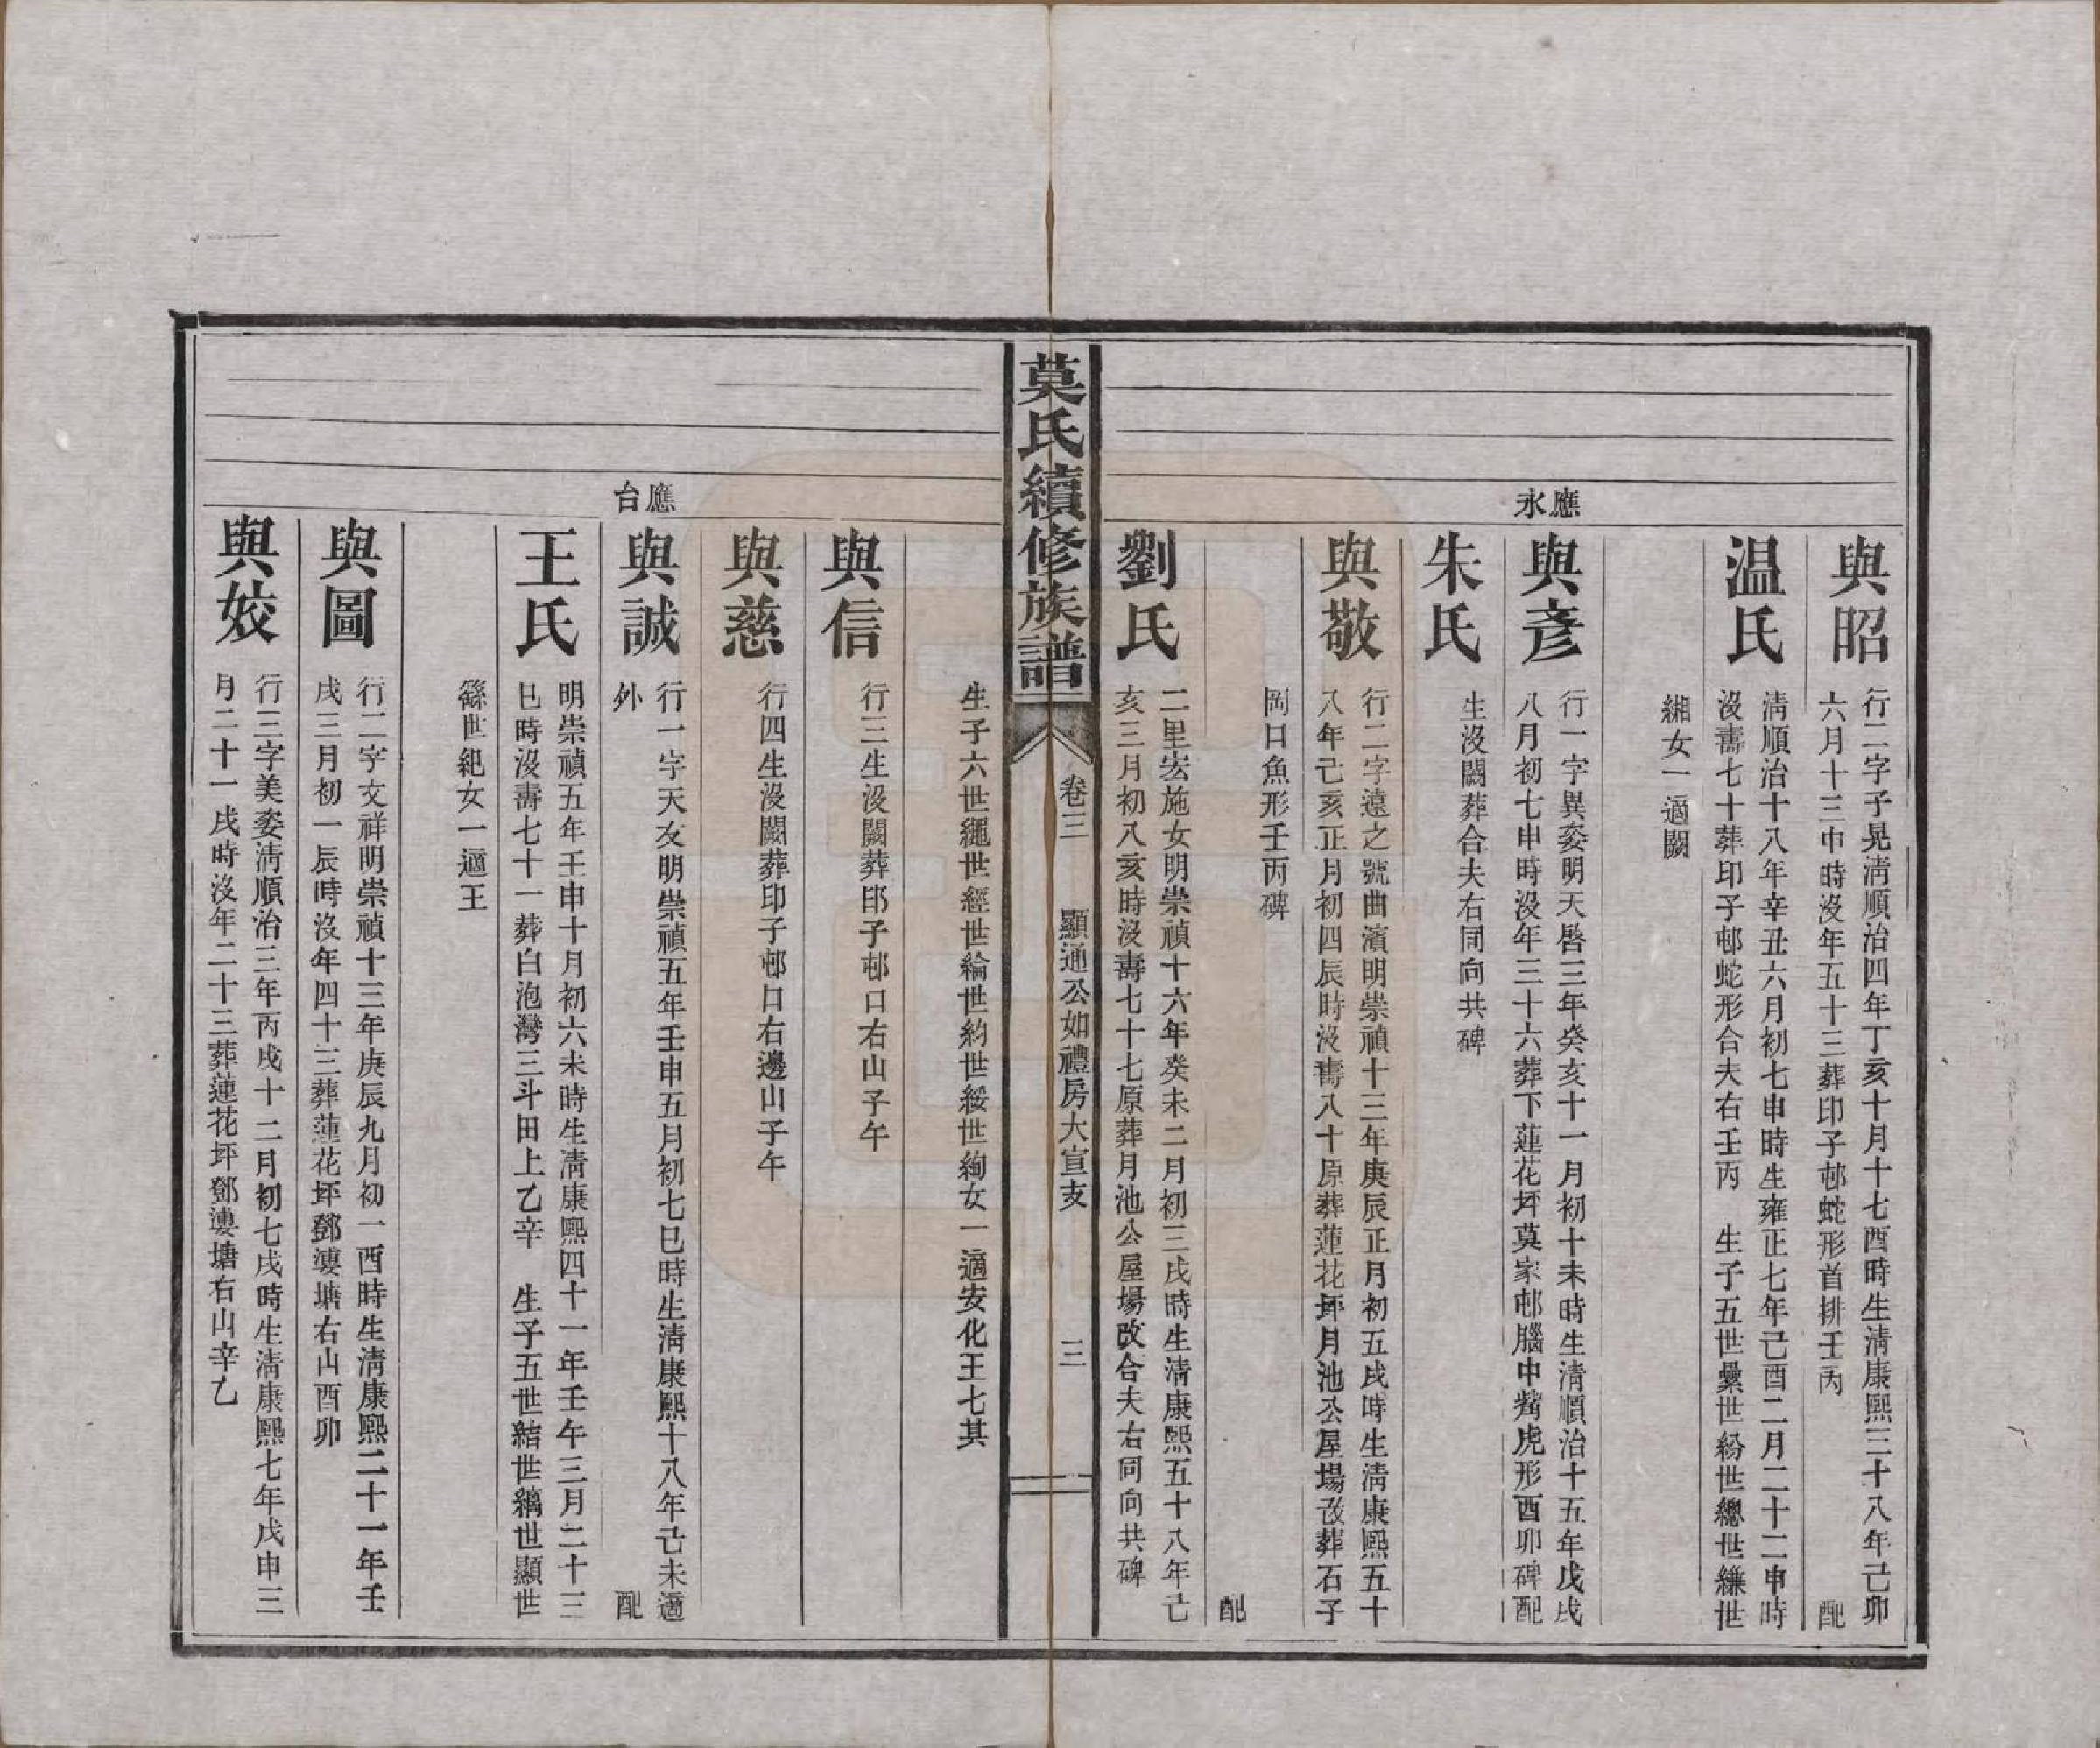 與昭
行二字子晃淸順治四年丁亥十月十七酉時生淸康熙三十八年己卯
六月十三申時沒年五十三葬印子邨蛇形首排壬丙　配
温氏
淸順治十八年辛丑六月初七申時生雍正七年己酉二月二十二申時
沒壽七十葬印子邨蛇形合夫右壬丙　生子五世纍世紛世總世縑世
緗女一適闕
應永
與彥
行一字異姿明天啓三年癸亥十一月初十未時生淸順治十五年戊戌
八月初七申時沒年三十六葬下蓮花坪莫家邨腦中嵴虎形酉卯碑配
朱氏
生沒闕葬合夫右同向共碑
與敬
行二字遠之號曲濱明崇禎十三年庚辰正月初五戌時生淸康熙五十
八年己亥正月初四辰時沒壽八十原葬蓮花坪月池公屋場改葬石子
岡口魚形壬丙碑　配
劉氏
二里宏施女明崇禎十六年癸未二月初三戌時生淸康熙五十八年己
亥三月初八亥時沒壽七十七原葬月池公屋場改合夫右同向共碑
莫氏續修族譜
卷三　顯通公如禮房大宣支　三
生子六世繩世經世綸世約世綏世絢女一適安化王七其
與信
行三生沒闕葬印子邨口右山子午
與慈
行四生沒闕葬印子邨口右邊山子午
應台
與誠
行一字天友明崇禎五年壬申五月初七巳時生淸康熙十八年己未適
外　配
王氏
明崇禎五年壬申十月初六未時生淸康熙四十一年壬午三月二十三
巳時沒壽七十一葬白泡灣三斗田上乙辛　生子五世結世縞世顯世
繇世紀女一適王
與圖
行二字文祥明崇禎十三年庚辰九月初一酉時生淸康熙二十一年壬
戌三月初一辰時沒年四十三葬蓮花坪鄧漊塘右山酉卯
與姣
行三字美姿淸順治三年丙戌十二月初七戌時生淸康熙七年戊申三
月二十一戌時沒年二十三葬蓮花坪鄧漊塘右山辛乙